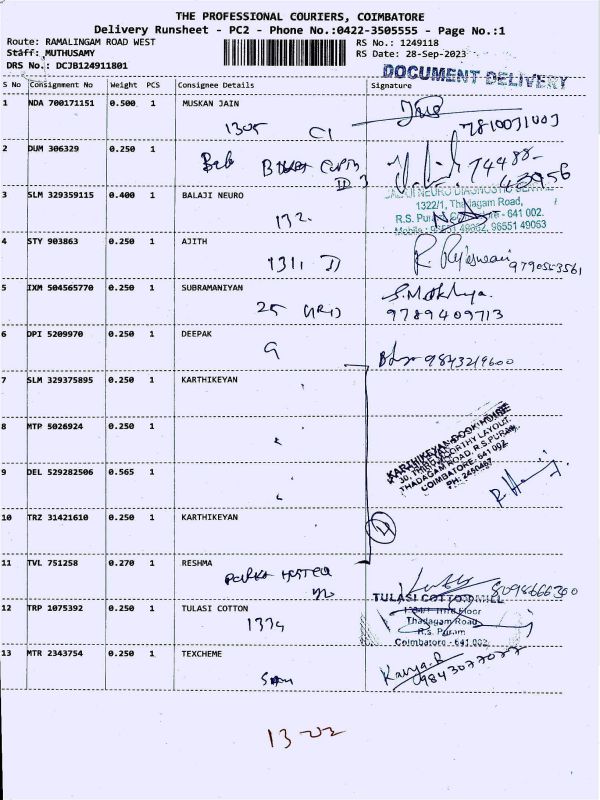 THE PROFESSIONAL COURIERS, COIMBATORE
Delivery Runsheet - PC2 - Phone No.:0422-3505555 - Page No.:1
Route: RAMALINGAM ROAD WEST RS No.: 1249118
Staff: MUTHUSAMY RS Date: 28-Sep-2023
DRS No.: DCJB124911801
DOCUMENT DELIVERY
S No Consignment No Weight PCS Consignee Details Signature
1 NDA 700171151 0.500 1 MUSKAN JAIN
1305 C1 7810031003
2 DUM 306329 0.250 1
74488-
43956
3 SLM 329359115 0.400 1 BALAJI NEURO
132.
1322/1, Thadagam Road,
R.S. Puram, Coimbatore - 641 002.
Mobile : 96551 49062, 96551 49063
4 STY 903863 0.250 1 AJITH
1311 D R. Rajeswari 9790553561
5 IXM 504565770 0.250 1 SUBRAMANIYAN
25
9789409713
6 DPI 5209970 0.250 1 DEEPAK
9 9843219600
7 SLM 329375895 0.250 1 KARTHIKEYAN
8 MTP 5026924 0.250 1
KARTHIKEYAN BOOK HOUSE
30, THIRUMOORTHY LAYOUT,
THADAGAM ROAD, R.S.PURAM,
COIMBATORE- 641 002
PH: 2450467
9 DEL 529282506 0.565 1
10 TRZ 31421610 0.250 1 KARTHIKEYAN
11 TVL 751258 0.270 1 RESHMA
8098666300
12 TRP 1075392 0.250 1 TULASI COTTON
1334
TULASI COTTON MILL
Floor
Thadagam Road
R.S. Puram
Coimbatore - 641 002
13 MTR 2343754 0.250 1 TEXCHEME
Kavya.R
9843077077
13-22